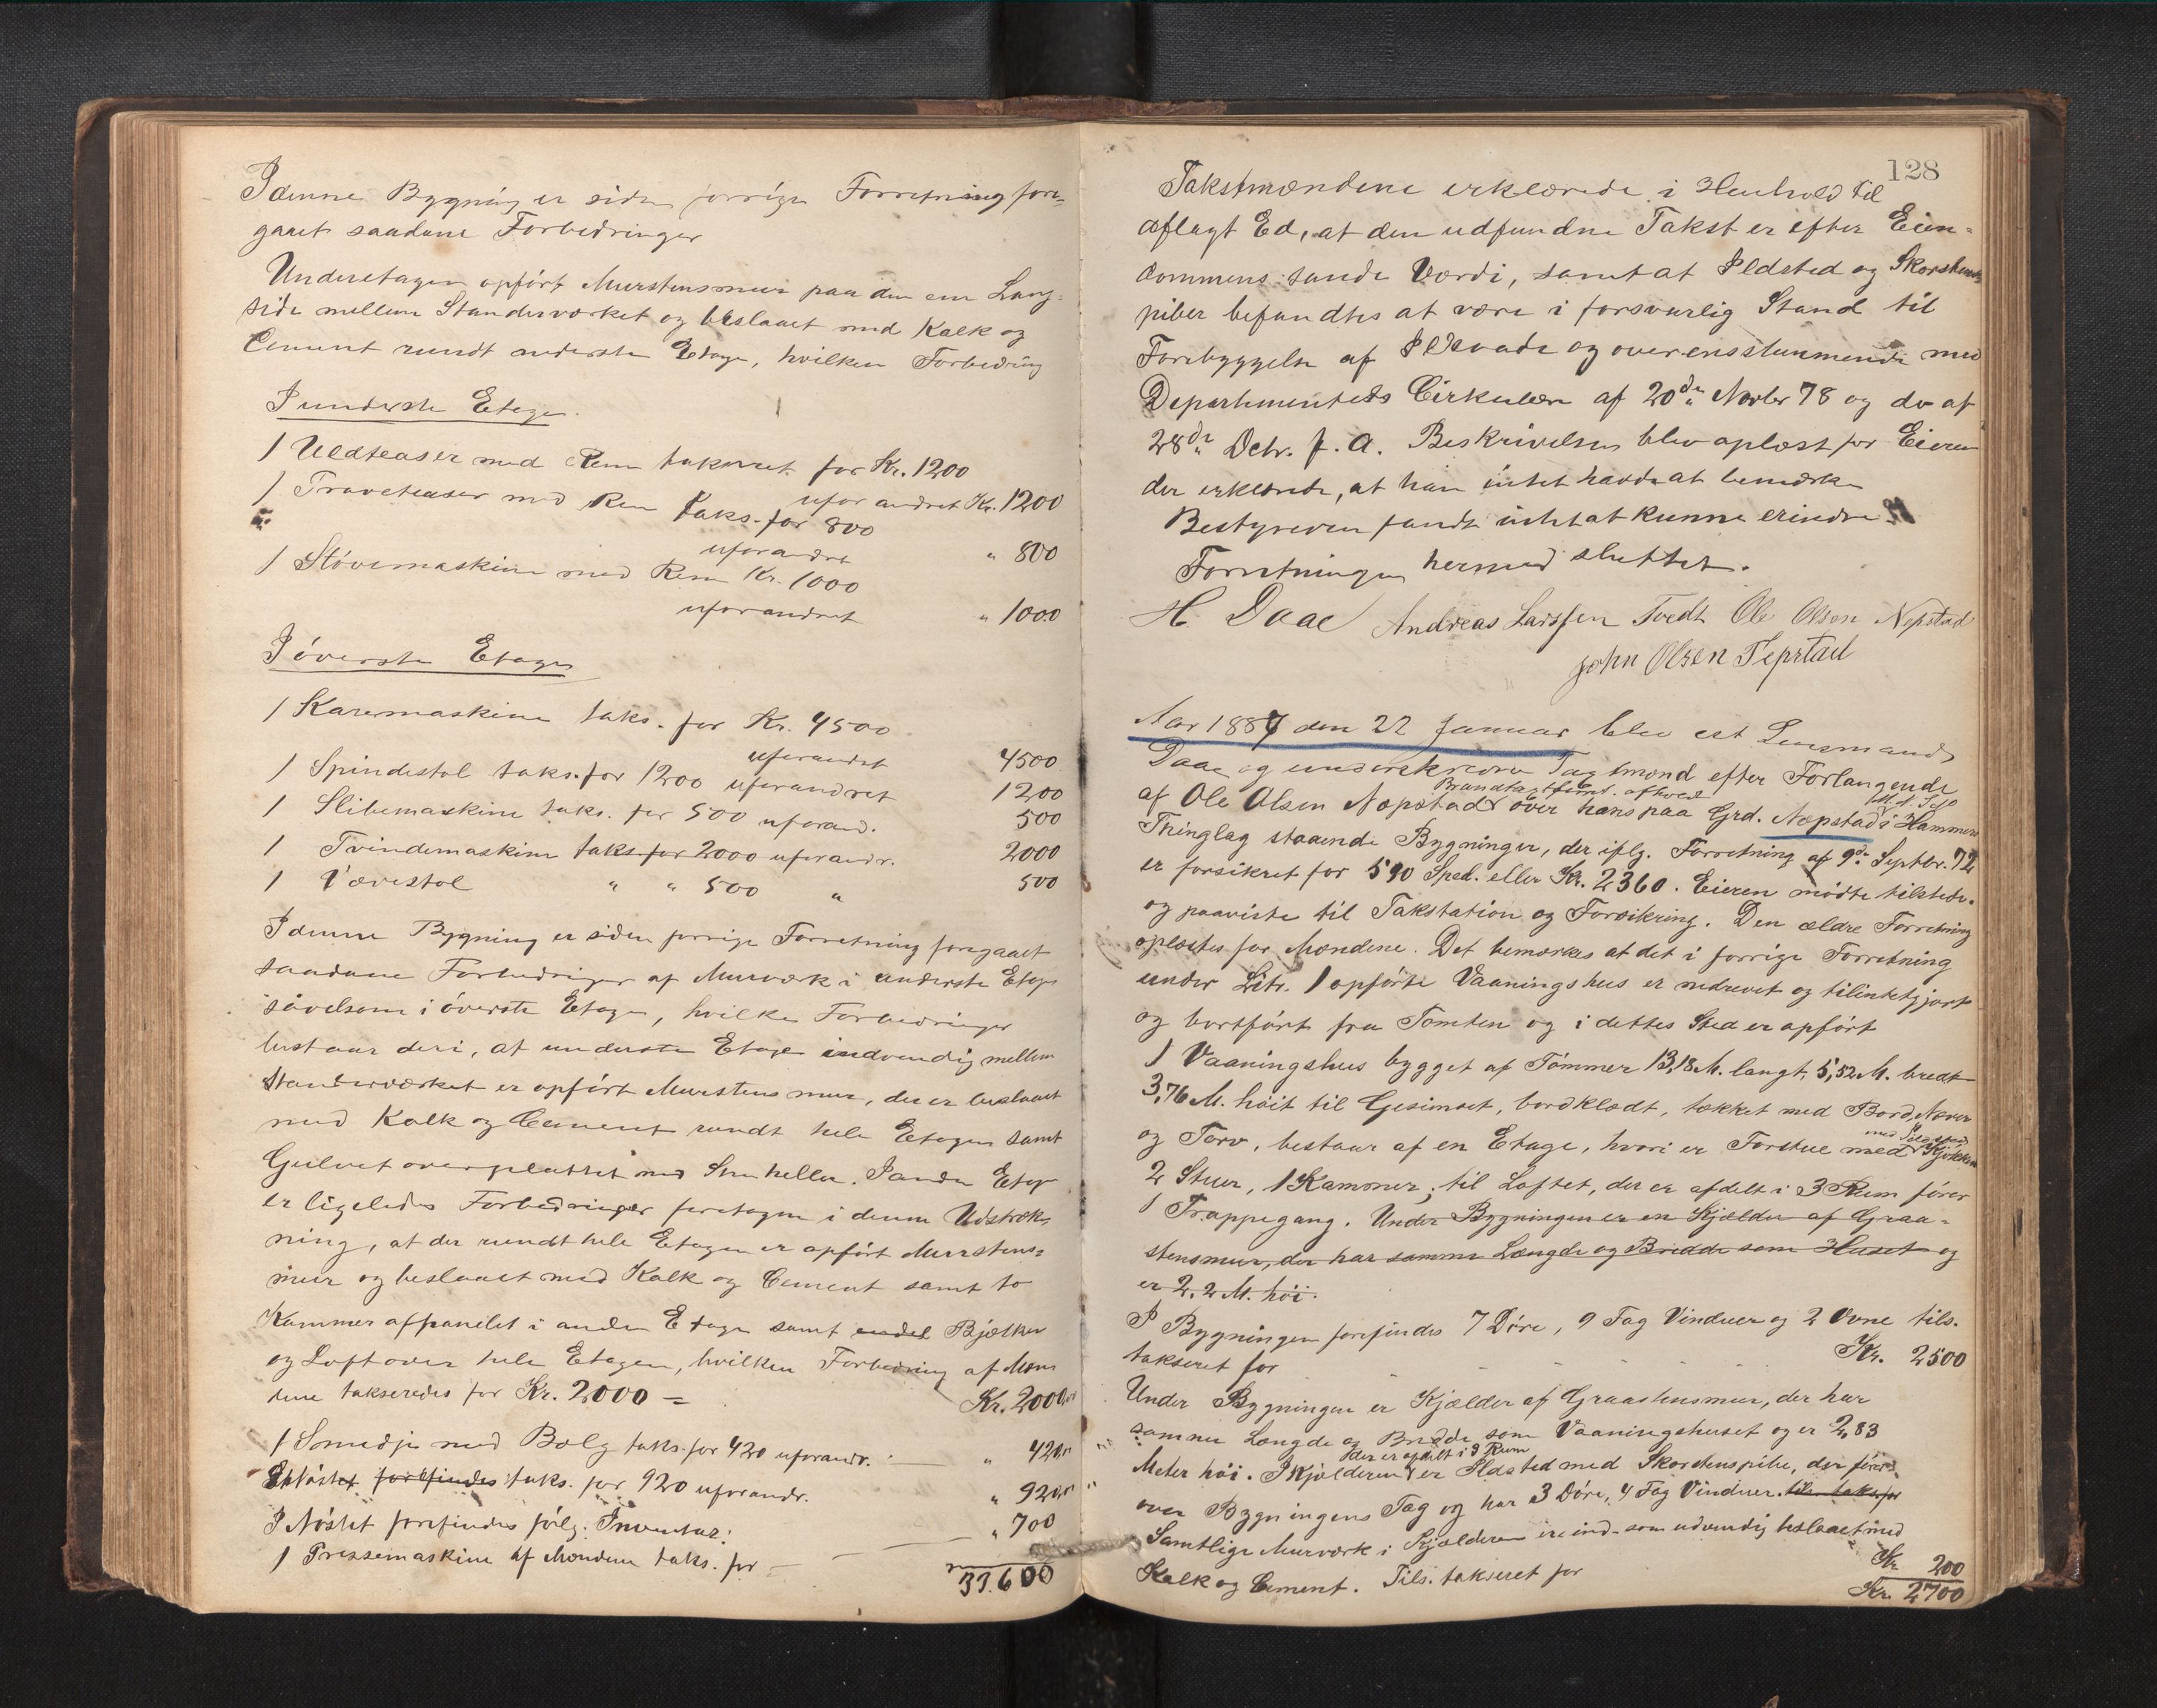 I denne Bygning er siden forrige Forretning fore-
gaaet saadane Forbedringer
Underetagen opført Murstensmur paa den ene Lang-
side mellem Standerværket og beslaaet med Kalk og
Cement rundt nedersten Etage, hvilken Forbedring
I underste Etage.
1 Uldteaser med Rem takseret for Kr. 1200
uforandret Kr. 1200
1 Traveteaser med Rem taks. for 800
uforandret " 800
1 Støvemaskine med Rem Kr. 1000
uforandret " 1000
I øverste Etage
1 Karemaskine taks. for Kr. 4500
uforandret 4500
1 Spindestol taks. for 1200 uforandret 1200
1 Slibemaskine taks. for 500 uforand. 500
1 Tvindemaskine taks for 2000 uforandr. 2000
1 Vævestol " " 500 " 500
I denne Bygning er siden forrige Forretning foregaaet
saadane Forbedringer af Murværk i underste Etage
såvelsom i øverste Etage, hvilke Forbedringer
bestaar deri, at underste Etage indvendig mellem
Standerværket er opført Murstens mur, der er beslaaet
med Kalk og Cement rundt hele Etagen samt
Gulvet overplattet med Stenheller. I anden Etage
er ligeledes Forbedringer foretagen i denne Udstræk-
ning, at der rundt hele Etagen er opført Murstens-
mur og beslaaet med Kalk og Cement samt to
Kammer afpanelet i anden Etage samt endel Bjælker
og Loft over hele Etagen, hvilken Forbedring af Mæn
dene takseredes for Kr. 2000 = Kr. 2000
1 Smedje med Bælg taks. for 420 uforandr. " 420
taks. for 920 uforandr. " 920
I Nøstet forefindes følg. Inventar:
1 Pressemaskine af Mændene taks. for " 700
37.600
128
Takstmændene erklærede i Henhold til
aflagt Ed, at den udfundne Takst er efter Eien-
dommens sande Værdi, samt at Ildsted og Skorstens-
piber befandtes at være i forsvarlig Stand til
Forebyggelse af Ildsvade og overensstemmende med
Departementets Cirkulære af 20de Novbr 78 og do af
28de Dcbr. f. A. Beskrivelsen blev oplæst for Eieren
der erklærede, at han intet havde at bemærke
Bestyreren fandt intet at kunne erindre.
Forretningen hermed sluttet.
H. Daae Andreas Larssen Tvedt Ole Olsen Nepstad
John Olsen Tepstad
Aar 1887 den 22 Januar blev est Lensmand
Daae og underskrevne Tagtmænd efter Forlangende
af Ole Olsen Næpstad over hans paa Grd. Næpstad i Hammers
Thinglag staaende Bygninger, der iflg. Forretning af 9de Septbr. 72
er forsikret for 590 Spd. eller Kr. 2360. Eieren mødte tilstede.
og paaviste til Takstation og Forsikring. Den ældre Forretning
oplæstes for Mændene. Det bemærkes at det i forrige Forretning
under Litr. 1 opførte Vaaningshus er nedrevet og tilintetgjort
og bortført fra Tomten og i dettes Sted er opført
1 Vaaningshus bygget af Tømmer 13,18 M. langt, 5,52 M. bredt
3,76 M. høit til Gesimset, bordklædt, tækket med Bord, Næver
og Torv, bestaar af en Etage, hvori er Forstue med Kjøkken
2 Stuer, 1 Kammer; til Loftet, der er afdelt i 3 Rum fører
1 Trappegang. Under Bygningen er en Kjælder af Graa-
stensmur, der har samme Længde og Bredde som Huset og
er 2,2 M. høi.
I Bygningen forefindes 7 Døre, 9 Fag Vinduer og 2 Ovne tils.
takseret for Kr. 2500
Under Bygningen er Kjælder af Graastensmur, der har
samme Længde og Bredde som Vaaningshuset og er 2,83
der er afdelt i 3 Rum
Meter høi. I Kjælderen er Ildsted med Skorstenspibe, der fører
over Bygningens Tag og har 3 Døre, 4 Fag Vinduer. tils. taks. for
Samtlige Murværk i Kjælderen er ind- som udvendig beslaaet med
Kalk og Cement. Tils. takseret for Kr. 200
Kr. 2700